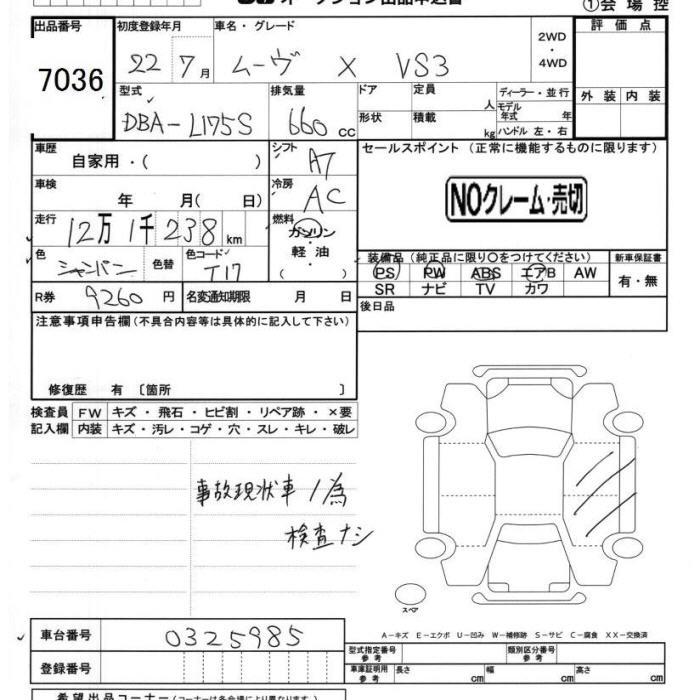 ①会場控
出品番号
7036
初度登録年月
22 7月
車名・グレード
ムーヴ X VS3
2WD
・
4WD
評価点
外装 内装
型式
DBA-L175S
排気量
660 cc
ドア
形状
定員
人
積載
kg
ディーラー・並行
モデル年式 年
ハンドル 左・右
車歴
自家用・( )
シフト
AT
セールスポイント(正常に機能するものに限ります)
NOクレーム・売切
車検
年 月( 日)
冷房
AC
走行
12万1千238km
燃料
ガソリン
軽油
( ・ )
色
シャンパン
色替
色コード
T17
装備品(純正品に限り○をつけてください)
PS PW ABS エアB AW
SR ナビ TV カワ
新車保証書
有・無
R券
9260円
名変通知期限 月 日
後日品
注意事項申告欄(不具合内容等は具体的に記入して下さい)
修復歴 有〔箇所 〕
検査員 FW キズ・飛石・ヒビ割・リペア跡・×要
記入欄 内装 キズ・汚レ・コゲ・穴・スレ・キレ・破レ
事故現状車ノ為
検査ナシ
スペア
A-キズ E-エクボ U-凹み W-補修跡 S-サビ C-腐食 XX-交換済
車台番号
0325985
登録番号
型式指定番号
参考
類別区分番号
参考
車庫証明用
参考
長さ cm
幅 cm
高さ cm
希望出品コーナー(コーナーは各会場により異なります)